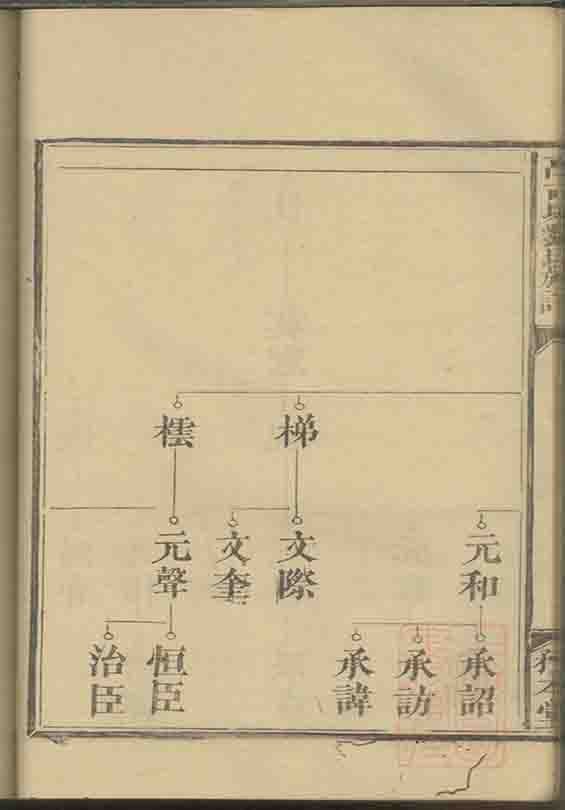 梯
橒
元和
文際
文奎
元聲
承詔
承訪
承諱
恒臣
治臣